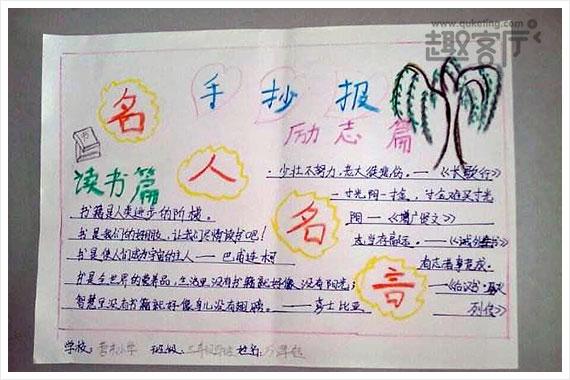 www.quketing.com
趣客厅
手抄报
名人名言
励志篇
读书篇
少壮不努力,老大徒悲伤。—《长歌行》
一寸光阴一寸金,寸金难买寸光
阴—《增广贤文》
志当存高远。—《诫外甥书》
有志者事竟成。
—《后汉书·
列传》
书籍是人类进步的阶梯。
书是我们的好朋友,让我们尽情读书吧!
书是使人们成为宇宙的主人——巴甫连柯
书是全世界的营养品,生活里没有书籍就好像没有阳光;
智慧里没有书籍就好像鸟儿没有翅膀。——莎士比亚
学校: 小学 班级: 姓名: